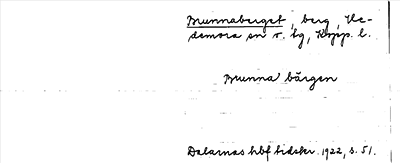 Brunnaberget, berg, He-
demora sn v. bg, Kopp. l.
Brunna bärgen
Dalarnas hbf tidskr. 1922, s. 51.